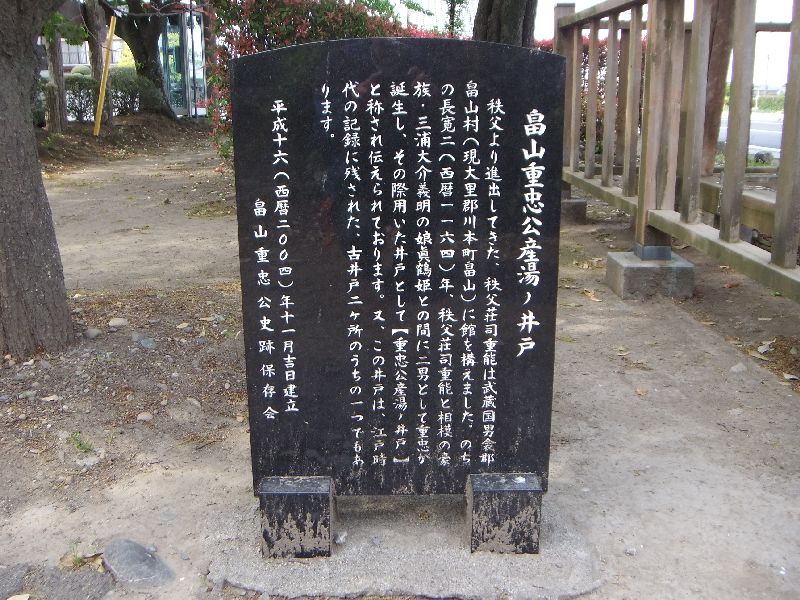 畠山重忠公産湯ノ井戸
秩父より進出してきた、秩父荘司重能は武蔵国男衾郡
畠山村（現大里郡川本町畠山）に館を構えました。のち
の長寛二（西暦一一六四）年、秩父荘司重能と相模の豪
族・三浦大介義明の娘真鶴姫との間に二男として重忠が
誕生し、その際用いた井戸として【重忠公産湯ノ井戸】
と称され伝えられております。又、この井戸は、江戸時
代の記録に残された、古井戸二ヶ所のうちの一つでもあ
ります。
平成十六（西暦二〇〇四）年十一月吉日建立
畠山重忠公史跡保存会